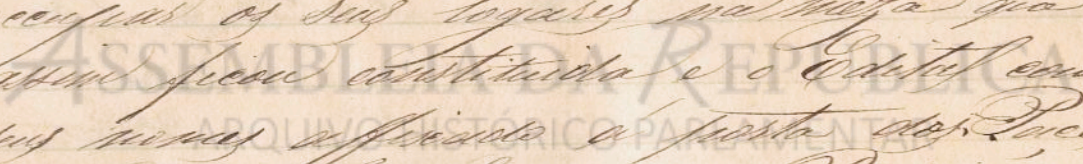 occupar os seus logares na meza que
assim ficou constituida e o Edital com
seus nomes affixado á porta dos Paç
ASSEMBLEIA DA REPÚBLICA
ARQUIVO HISTÓRICO PARLAMENTAR